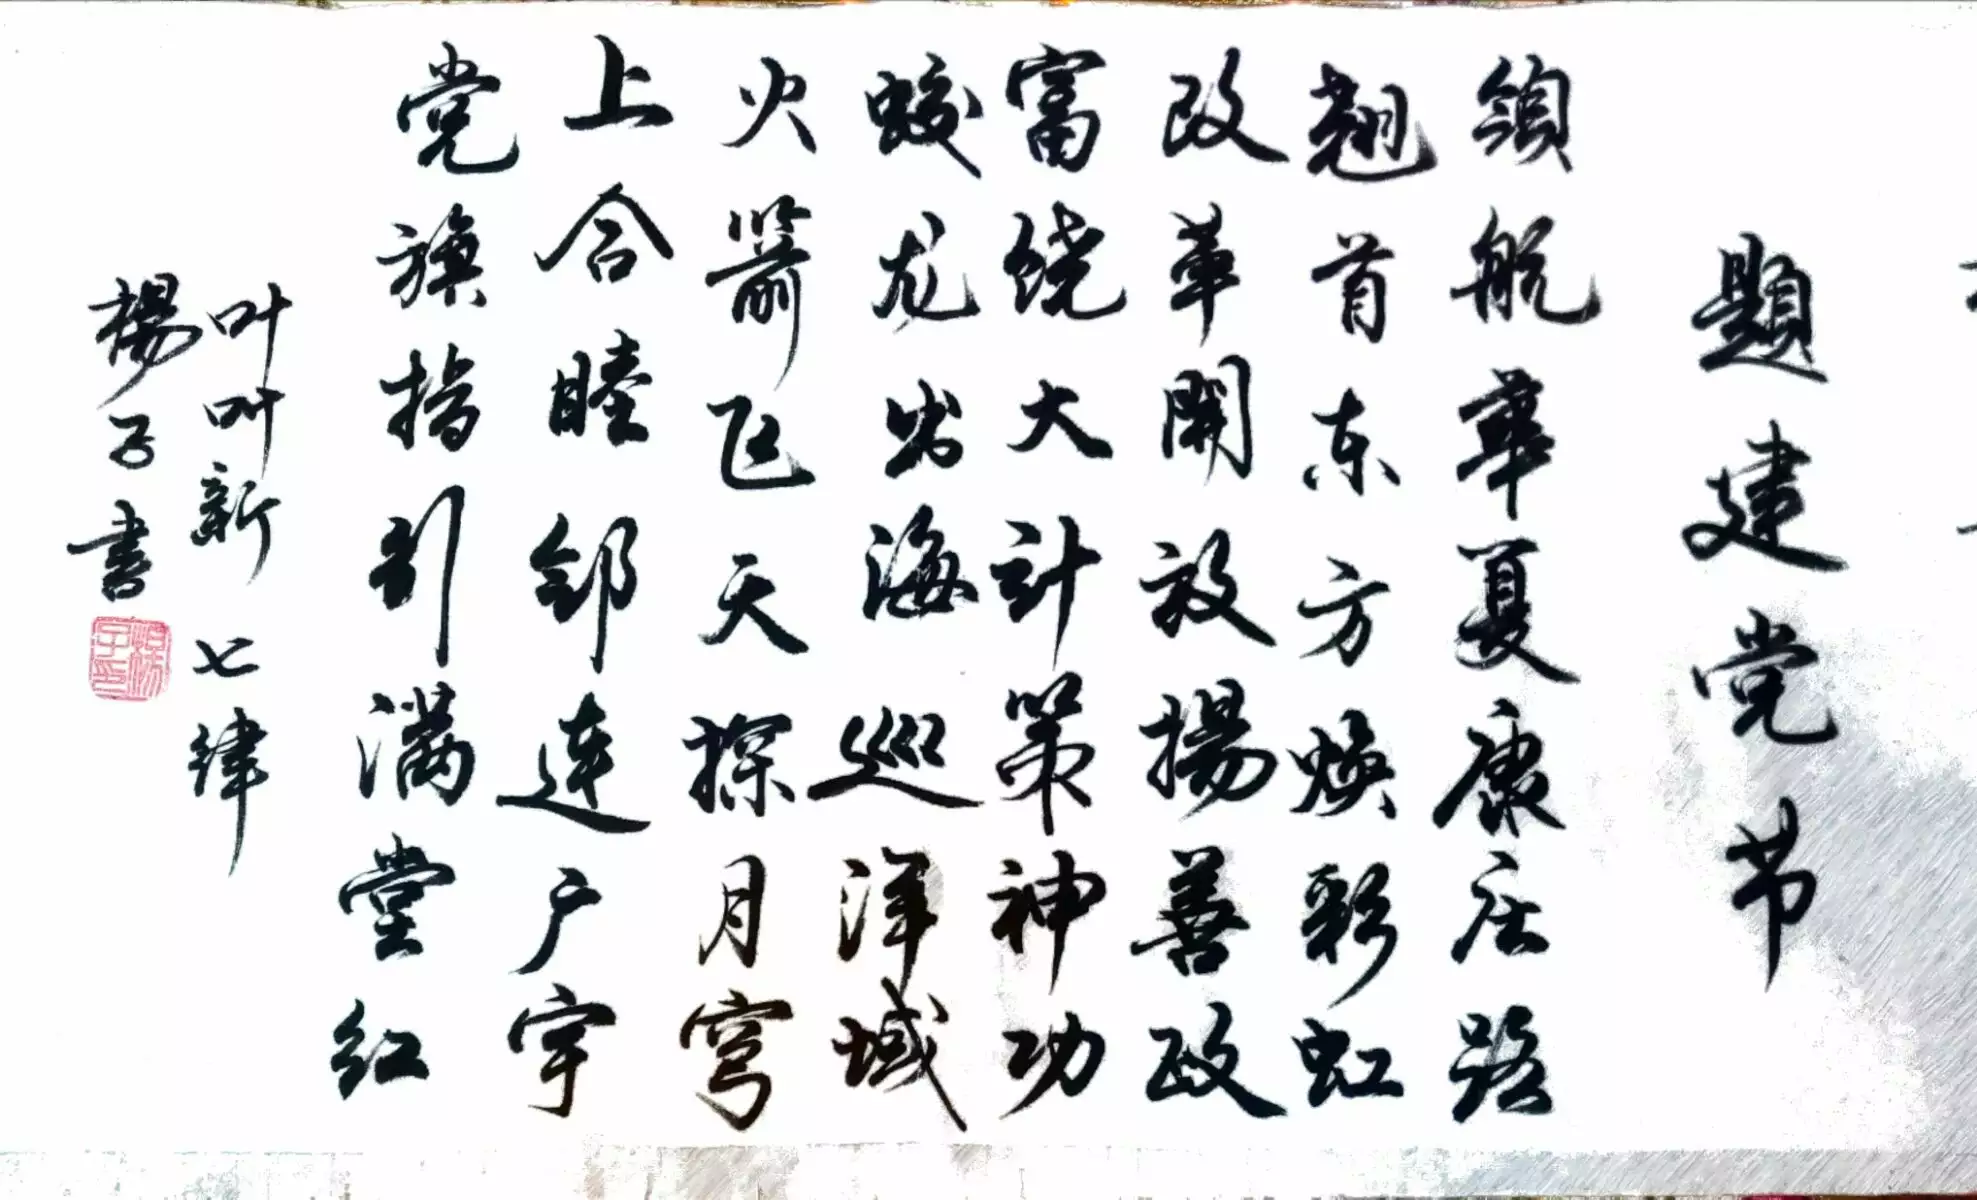 題建党节
領航華夏康庄路
翘首东方焕彩虹
改革開放揚善政
富饶大计策神功
蛟龙出海巡洋域
火箭飞天探月穹
上合睦邻连户宇
党旗指引满堂红
叶叶新 七律
楊子書
楊子印